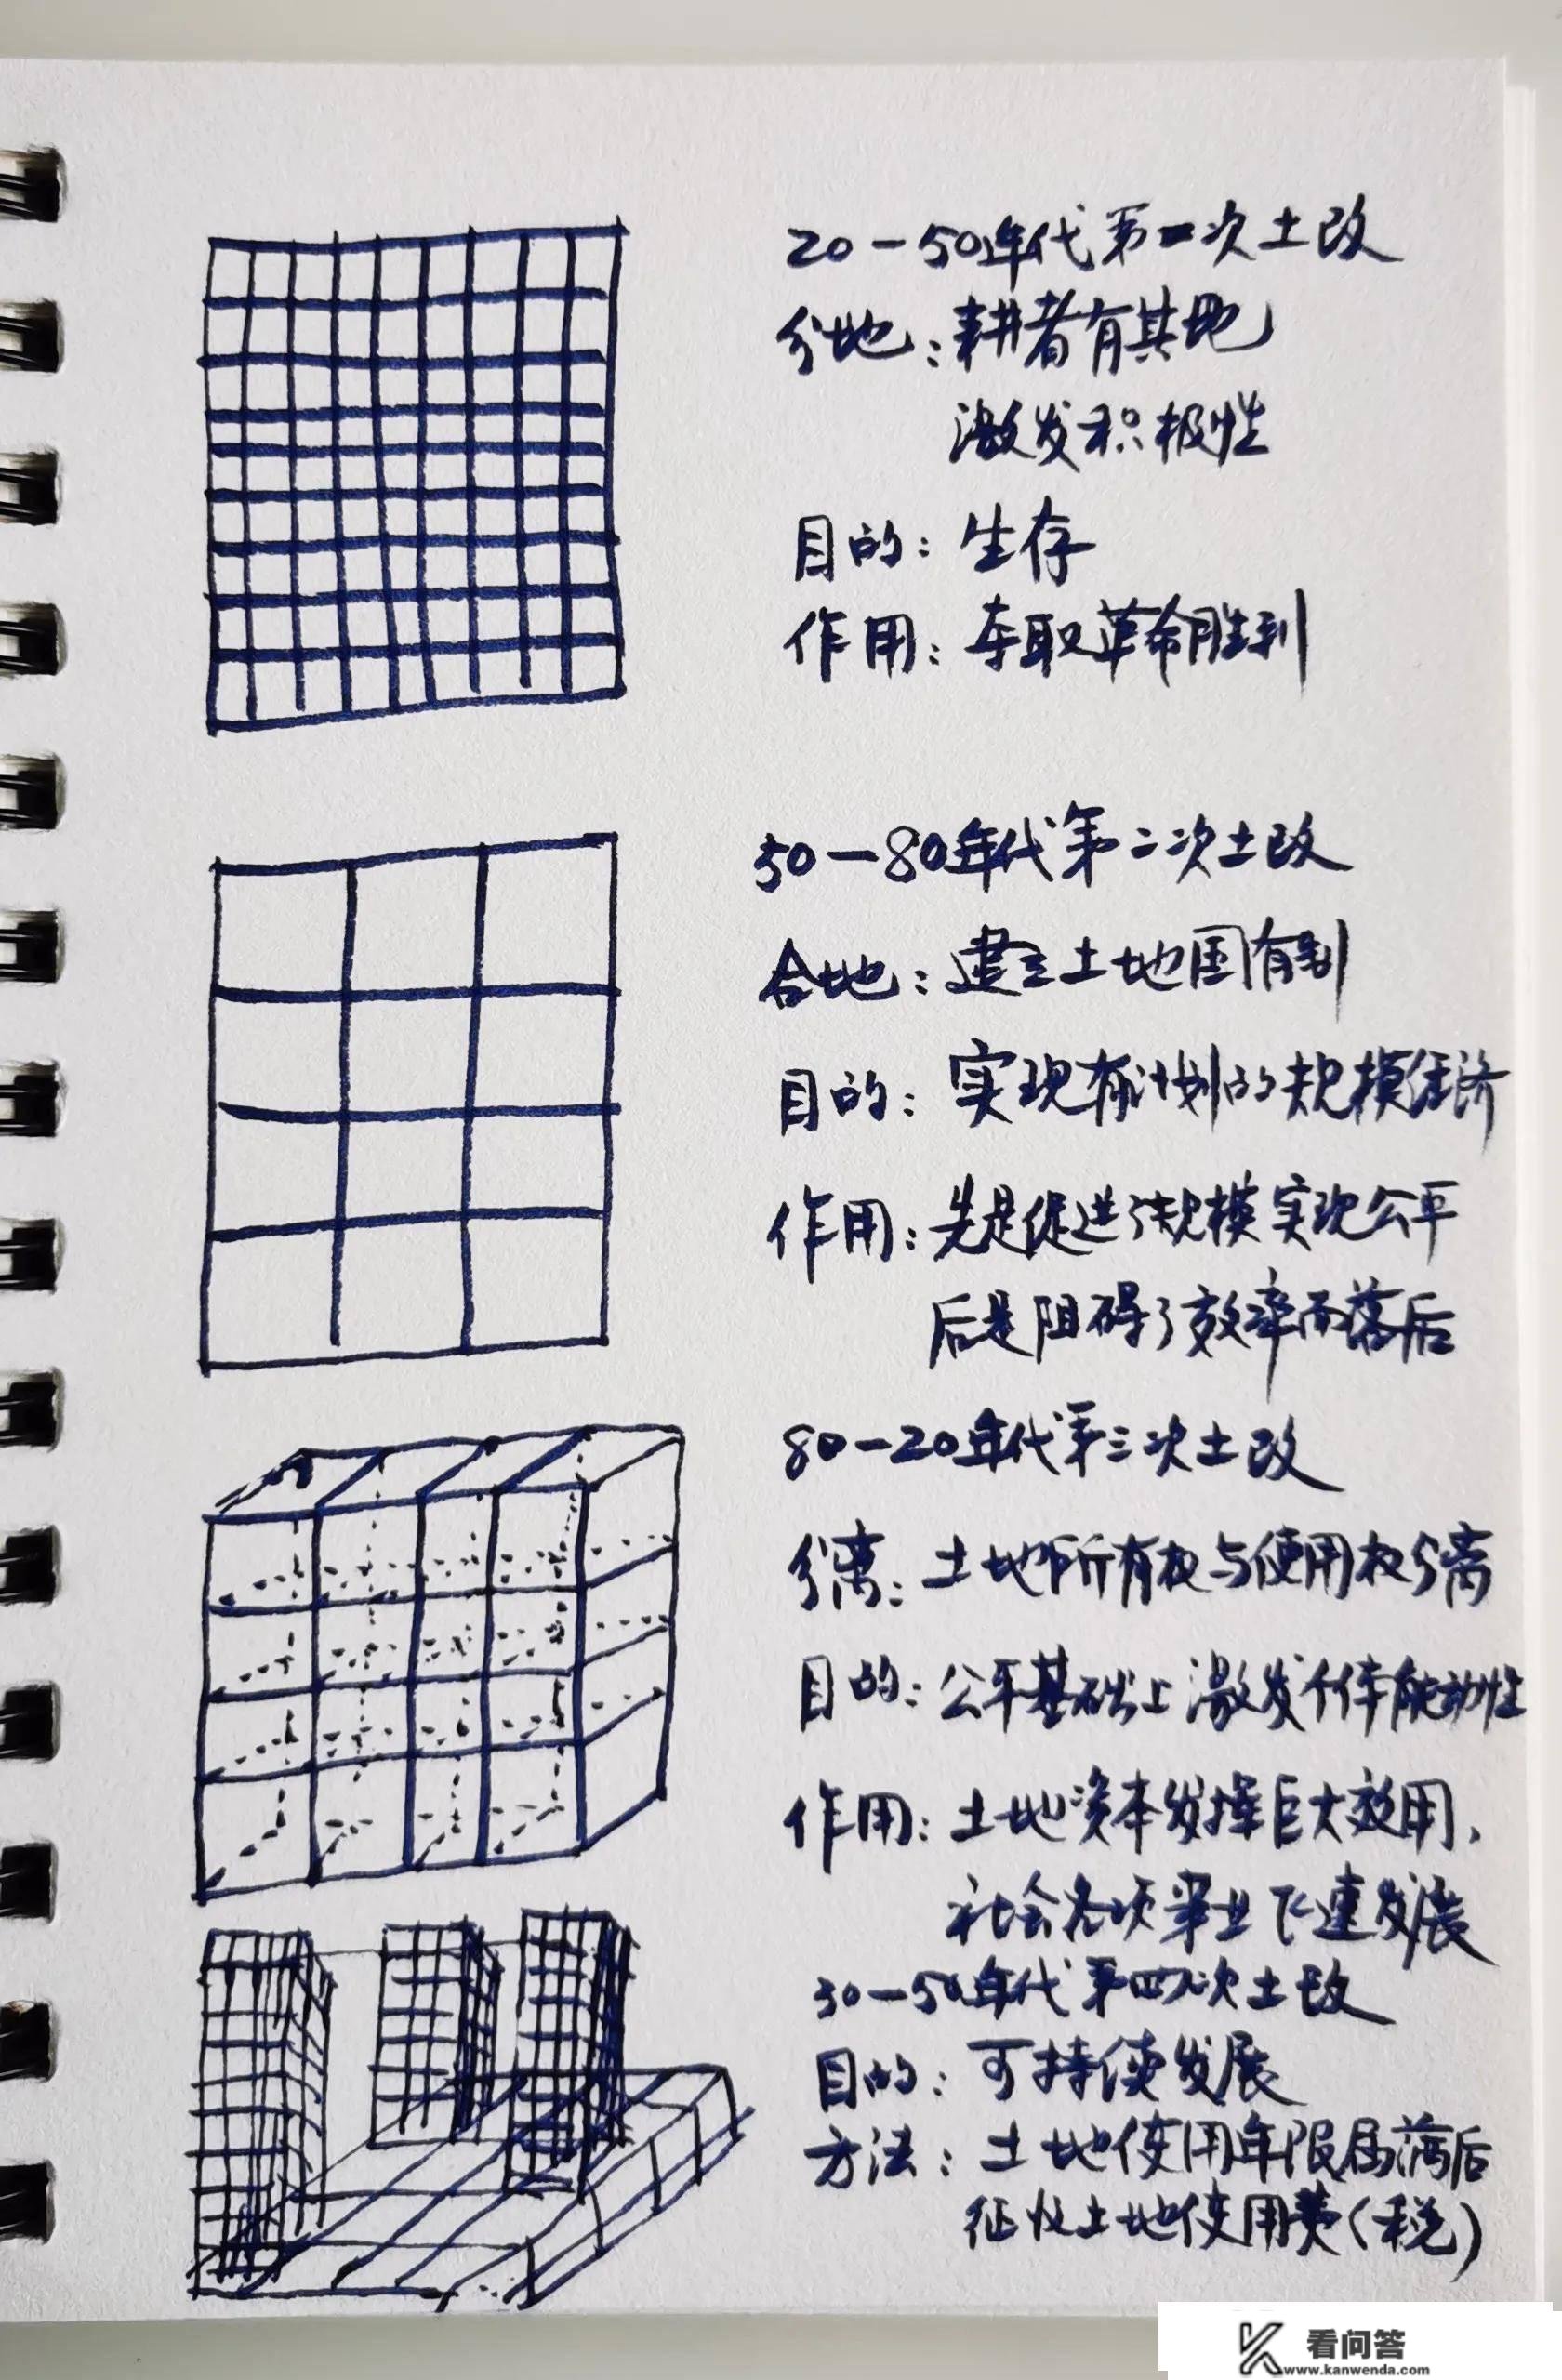 20-50年代第一次土改
分地:耕者有其地
激发积极性
目的:生存
作用:夺取革命胜利
50-80年代第二次土改
合地:建立土地国有制
目的:实现有计划的规模经济
作用:先是促进了规模实现公平
后是阻碍了效率而落后
80-20年代第三次土改
分离:土地所有权与使用权分离
目的:公平基础上激发个体能动性
作用:土地资本发挥巨大效用,
社会各项事业飞速发展
30-50年代第四次土改
目的:可持续发展
方法:土地使用年限届满后
征收土地使用费(税)
看问答
www.kanwenda.com